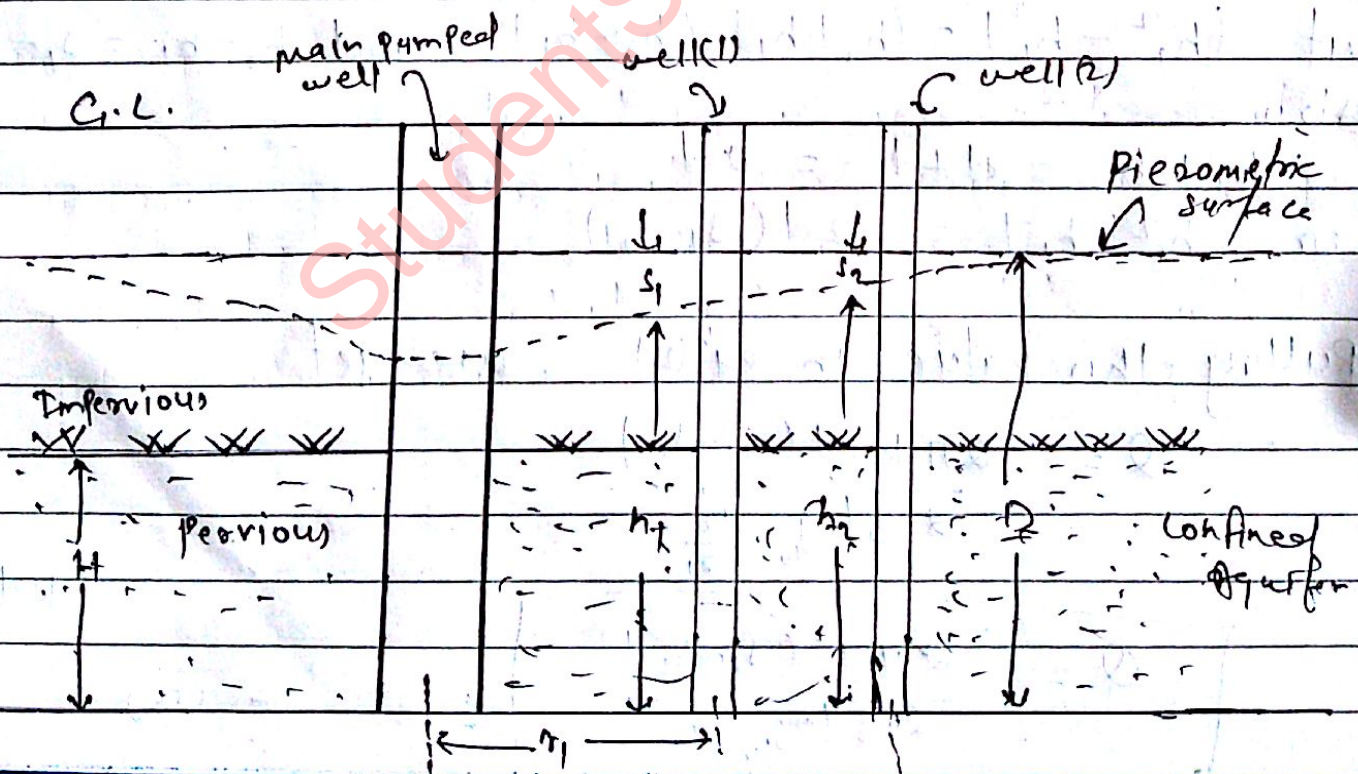 Main pumped
well
well(1)
well(2)
G.L.
Piezometric
surface
s1
s2
Impervious
Pervious
H
h1
h2
D
Confined
Aquifer
r1
Students